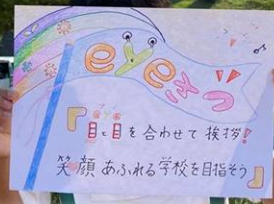 eyeさつ
『目と目を合わせて挨拶!
笑顔あふれる学校を目指そう』